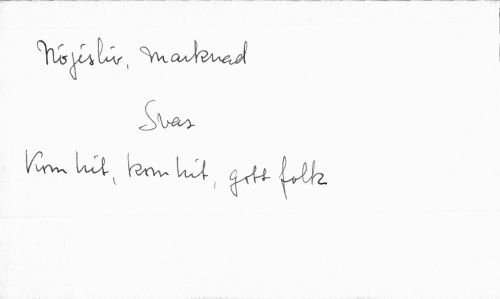 Nöjesliv, marknad
Svas
Kom hit, kom hit, gott folk